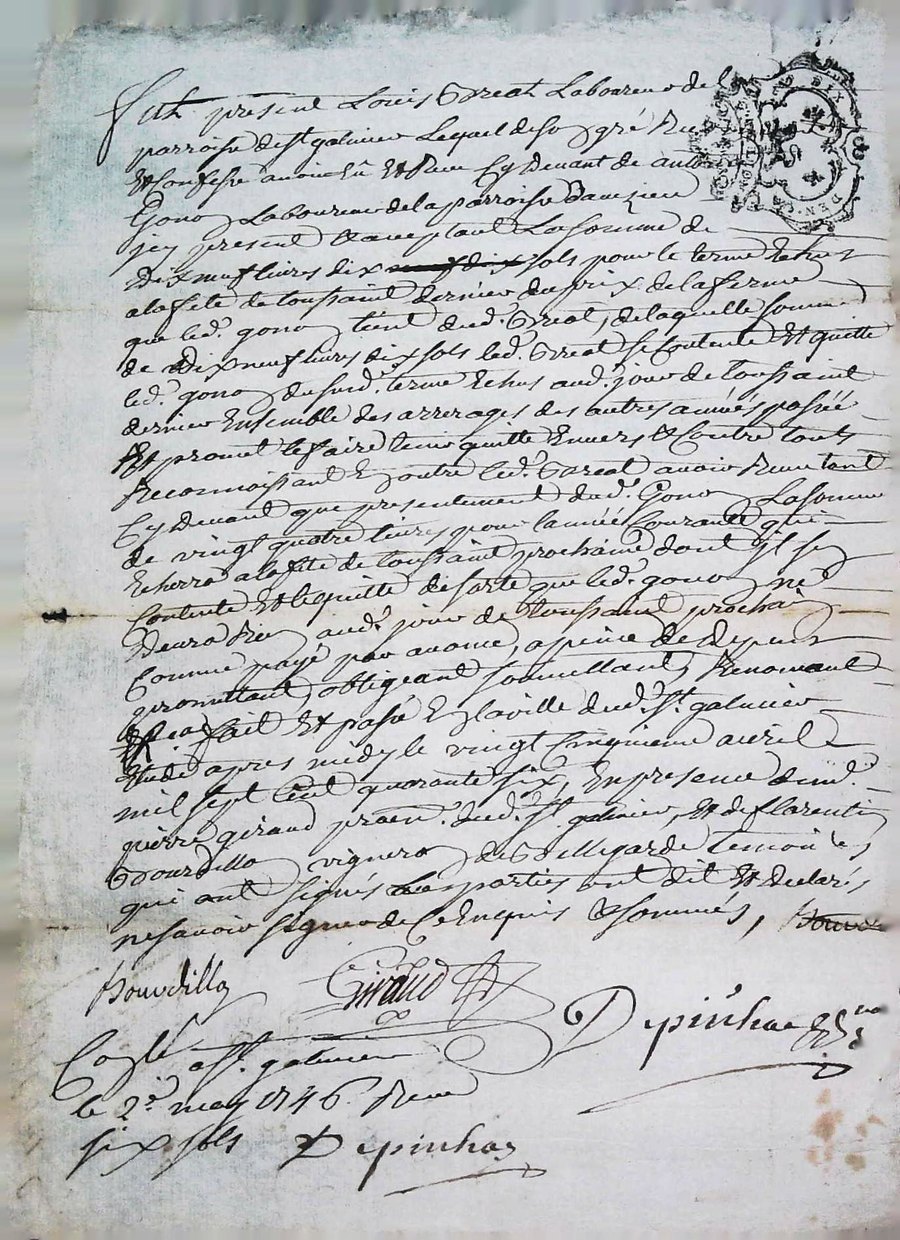 fut présent Louis Great Laboureur de la
parroisse de St galmier Lequel de son gré Re
Et Confesse avoir Eû Et Reçu Cy Devant de antoine
Gono Laboureur de la parroisse Daveizieu
jcy présent Et acceptant La somme de
Dix neuf livres dix sols pour le terme Echus
a la fête de toussaint dernier du prix de la ferme
que led. gono tient dud. Great, de laquelle somme
de Dix neuf livres dix sols led. Great se Contente Et quitte
led. gono du susd. terme Echus aud. jour de toussaint
dernier Ensemble des arrerages des autres années passée
Et promet le faire tenir quitte Envers Et Contre touts
Reconnoissant En outre led. Great avoir Reçu tant
Cy Devant que presentement dud. Gono La somme
de vingt quatre livres pour l'année Courante qui
Echerra a la fête de toussaint prochaine dont il se
Contente Et le quitte de sorte que led. gono ne
Devra Rien aud. jour de toussaint prochain
Comme payé par avance, a peine de Depens
promettant, obligeant soumettant, Renonceant
fait Et passé En la ville dud. St. galmier
Etude après midy le vingt Cinquieme avril
mil sept Cent quarante six, En presence de
pierre giraud dud. St. galmier, Et de florentin
Bourdillon vigneron de Bellegarde temoins
qui ont signés Les parties ont dit Et Declarés
ne savoir signer de Ce Enquis Et sommés,
Bourdillon Giraud
Depinhac
Conlé a St. galmier
le 2e may 1746 Reçu
six sols Depinhac